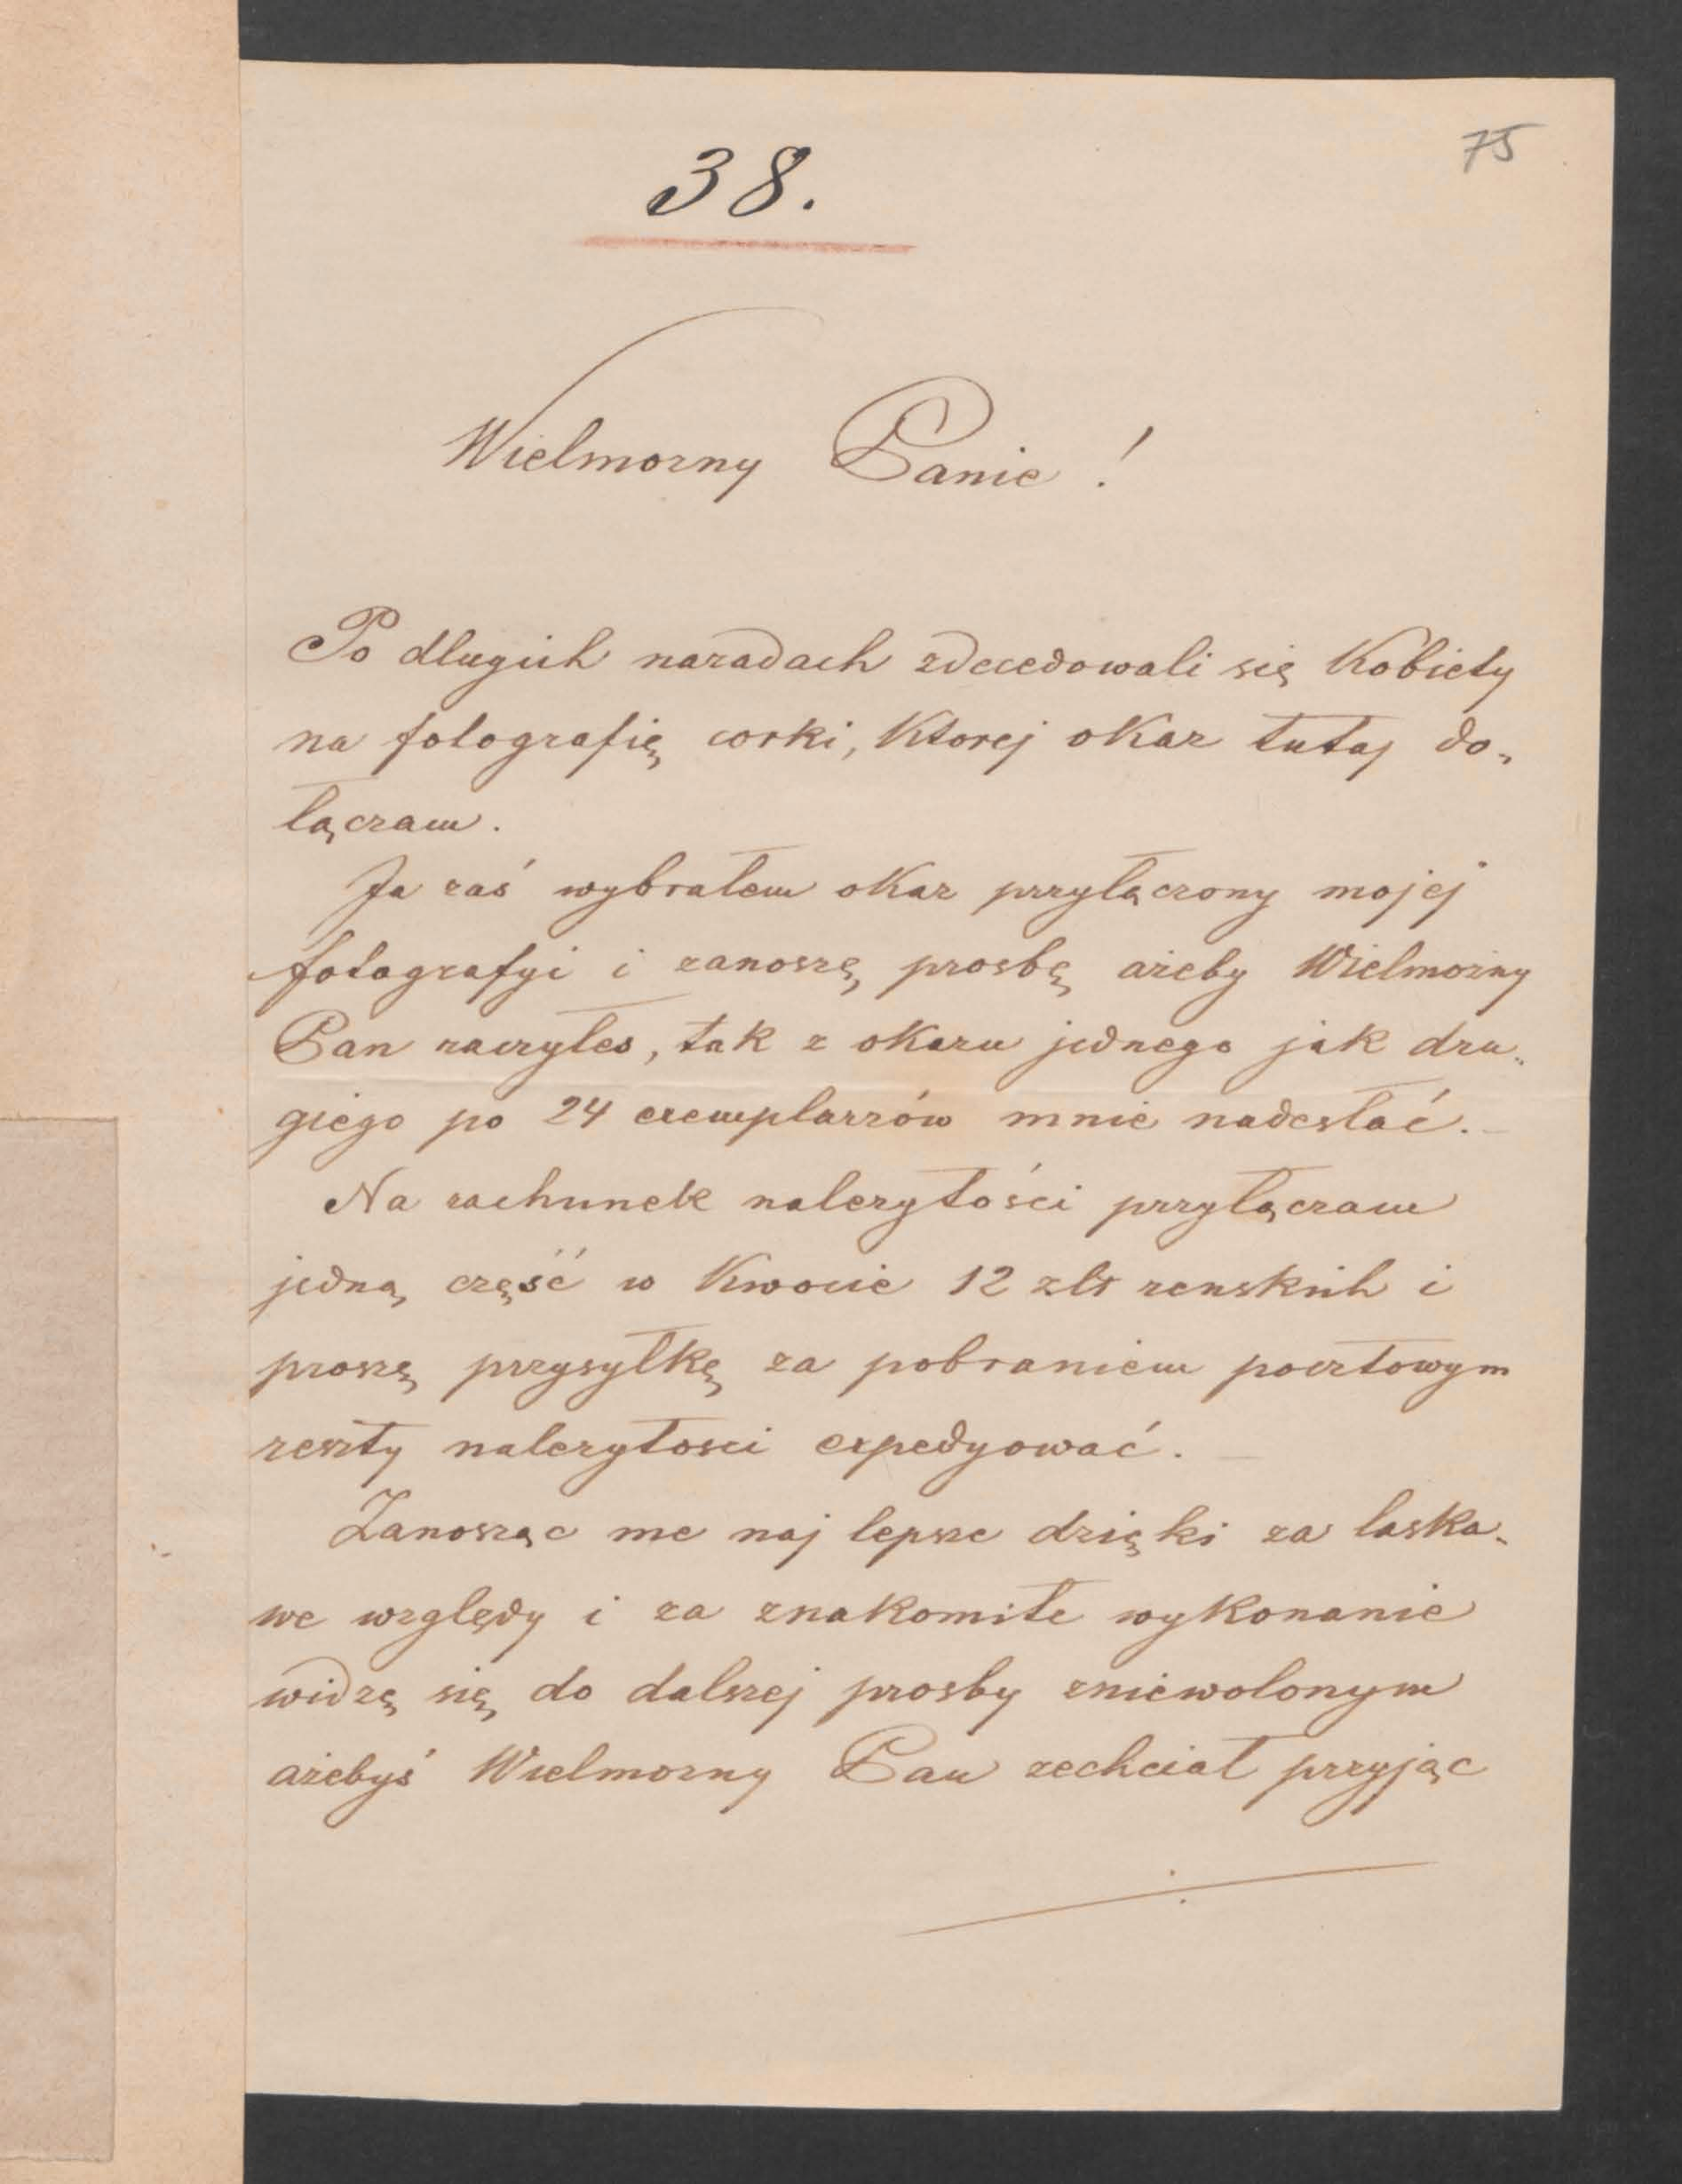 75
38.
Wielmozny Panie !
Po dlugich naradach zdecedowali się Kobiety
na fotografię corki, Ktorej okaz tutaj do„
łączam.
Ja zaś wybrałem okaz przyłączony mojej
fotografyi i zanoszę prosbę ażeby Wielmożny
Pan raczyłes, tak z okazu jednego jak dru„
giego po 24 exemplarzów mnie nadesłać. –
Na rachunek nalezytości przyłączam
jedną część w Kwocie 12 złr renskich i
proszę przysyłkę za pobraniem pocztowym
reszty nalezytosci expedyować. –
Zanosząc me naj lepsze dzięki za laska„
we względy i za znakomite wykonanie
widzę się do dalszej prosby zniewolonym
ażebyś Wielmozny Pan zechciał przyjąc